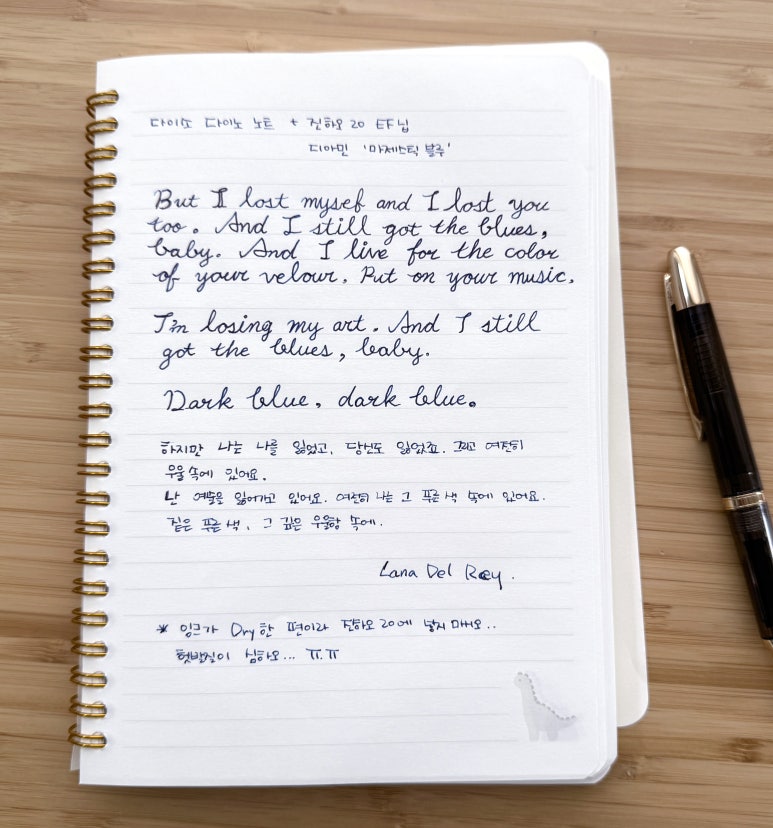 다이소 다이노 노트 + 진하오 20 EF닙
디아민 '마제스틱 블루'
But I lost mysef and I lost you
too. And I still got the blues,
baby. And I live for the color
of your velour. Put on your music.
I'm losing my art. And I still
got the blues, baby.
Dark blue, dark blue.
하지만 나는 나를 잃었고, 당신도 잃었죠. 그리고 여전히
우울 속에 있어요.
난 예술을 잃어가고 있어요. 여전히 나는 그 푸른 색 속에 있어요.
짙은 푸른 색, 그 깊은 우울함 속에.
Lana Del Rey.
* 잉크가 Dry한 편이라 진하오 20에 넣지 마시오..
헛발질이 심하오... ㅠ.ㅠ